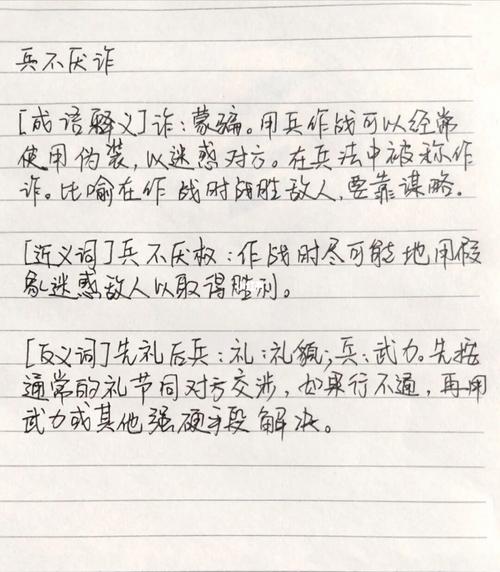 兵不厌诈
[成语释义]诈：蒙骗。用兵作战可以经常
使用伪装，以迷惑对方。在兵法中被称作
诈。比喻在作战时战胜敌人，要靠谋略。
[近义词]兵不厌权：作战时尽可能地用假
象迷惑敌人以取得胜利。
[反义词]先礼后兵：礼：礼貌；兵：武力。先按
通常的礼节同对方交涉，如果行不通，再用
武力或其他强硬手段解决。